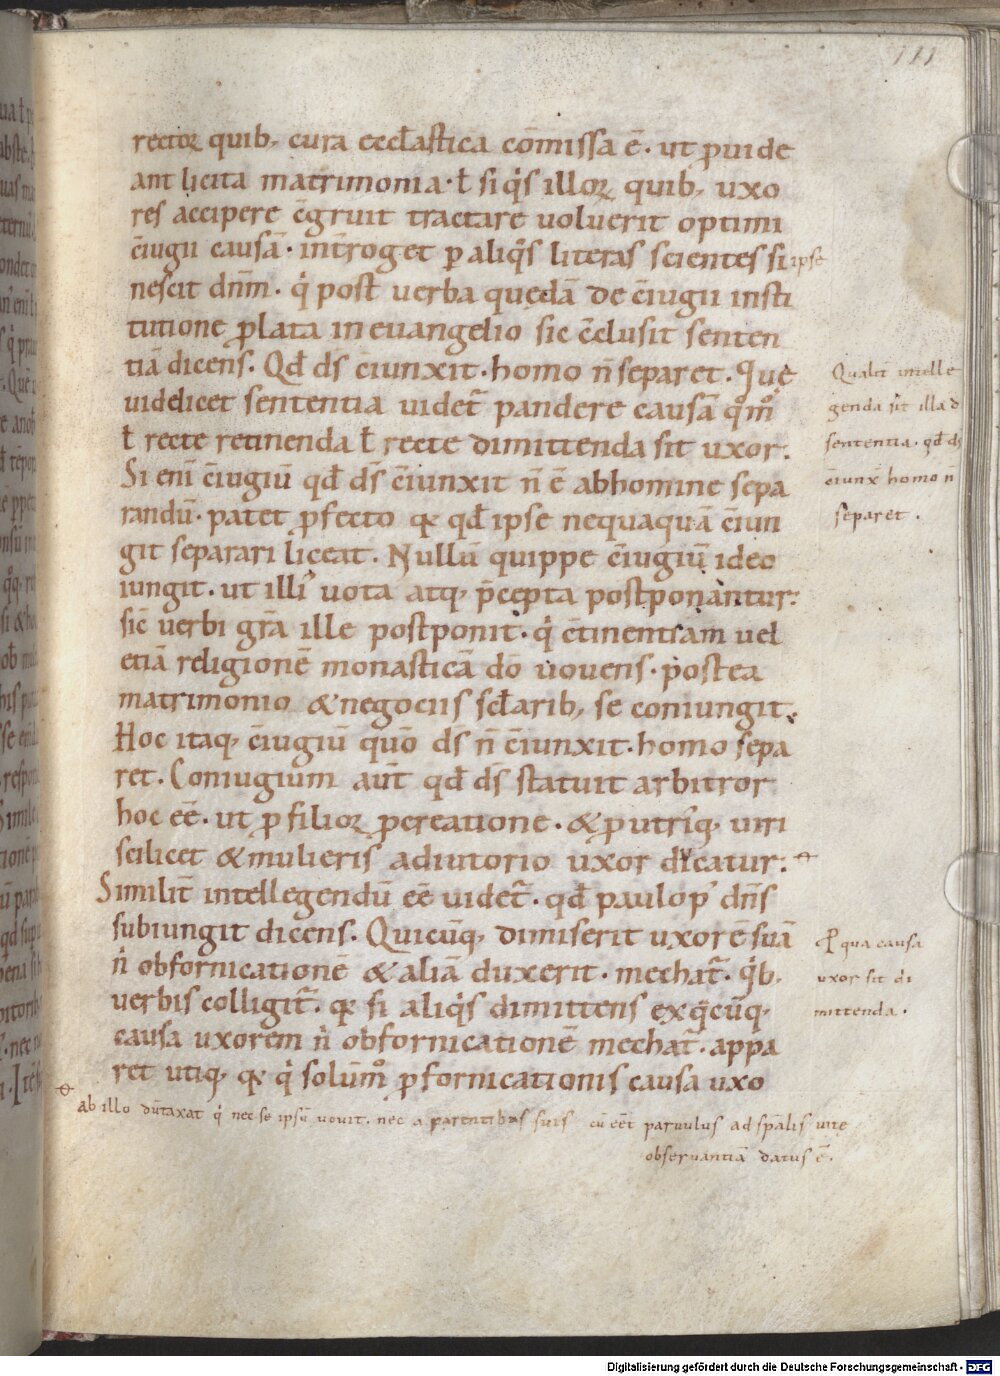 111
rectoꝝ quib; cura eccl̄astica cōmissa ē· ut ꝓuide
ant licita matrimonia· ł si q̇s illoꝝ quib; uxo
res accipere c̄gruit tractare uoluerit optimi
c̄iugii causā· int̄roget p aliq̇s literas scientes si ipse
nescit dn̄m· q̇ post uerba quędā de c̄iugii insti
tutione ꝓlata in euangelio sic c̄clusit senten
tiā dicens. Qđ ds̄ c̄iunxit· homo n̄ separet. Quę
uidelicet sententia uidet̄ pandere causā qͦmͦ
ł recte retinenda ł recte dimittenda sit uxor.
Si eni c̄iugiū qđ ds̄ c̄iunxit n̄ ē abhomine sepa
randū· patet ꝓfecto qꝛ qđ ipse nequaquā c̄iun
git separari liceat. Nullū quippe c̄iugiū ideo
iungit· ut illiꝰ uota atq; p̄cepta postponantur:
sic̄ uerbi grā ille postponit· q̇ c̄tinentiam uel
etiā religionē monasticā dō uouens· postea
matrimonio & negociis scl̄arib; se coniungit.
Hoc itaq; c̄iugiū quō ds̄ n̄ c̄iunxit· homo sepa
ret. Coniugium aūt qđ ds̄ statuit arbitror
hoc eē· ut p filioꝝ pcreatione· & p utriq; uiri
scilicet & mulieris adiutorio uxor ducatur:
Similit̄ intellegendū eē uidet̄· qđ paulo pꝰ dn̄s
subiungit dicens. Quicūq; dimiserit uxorē suā
n̍ ob fornicationē & aliā duxerit· mechat̄· q̇b;
uerbis colligit̄· qꝛ si aliq̇s dimittens ex q̇cūq;
causa uxorem n̍ ob fornicationē mechat̄· appa
ret utiq; qꝛ q̇ solūmͦ p fornicationis causa uxo
ab illo dūtaxat q̇ nec se ipsū uouit· nec a parentibus suis cū eēt paruulus ad spālis uite
obseruantiā datus ē.
Qualit̄ intelle
genda sit illa d
sententia· qđ ds
c̄iunx̄ homo n̄
separet.
P qua causa
uxor sit di
mittenda.
Digitalisierung gefördert durch die Deutsche Forschungsgemeinschaft - DFG